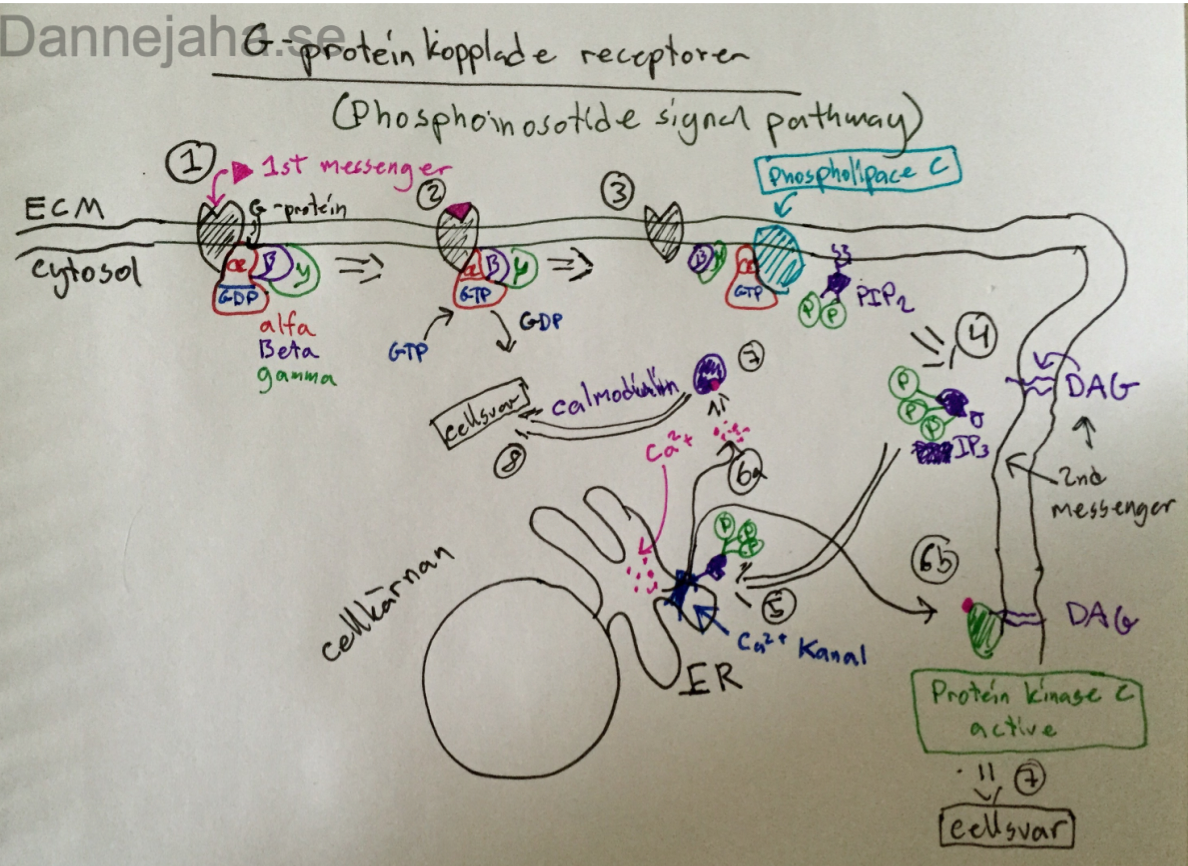 Dannejaha.se
G-protein kopplade receptorer
(Phosphoinosotide signal pathway)
1
1st messenger
2
3
Phospholipace C
ECM
G-protein
cytosol
α B y
GDP
α B y
GTP
B y α
GTP
PIP2
P P
alfa
Beta
gamma
GTP
GDP
4
DAG
P
P
P
IP3
2nd
messenger
7
calmodulin
cellsvar
8
Ca2+
6a
P P P
5
Ca2+ Kanal
cellkärnan
ER
6b
DAG
Protein kinase C
active
7
cellsvar